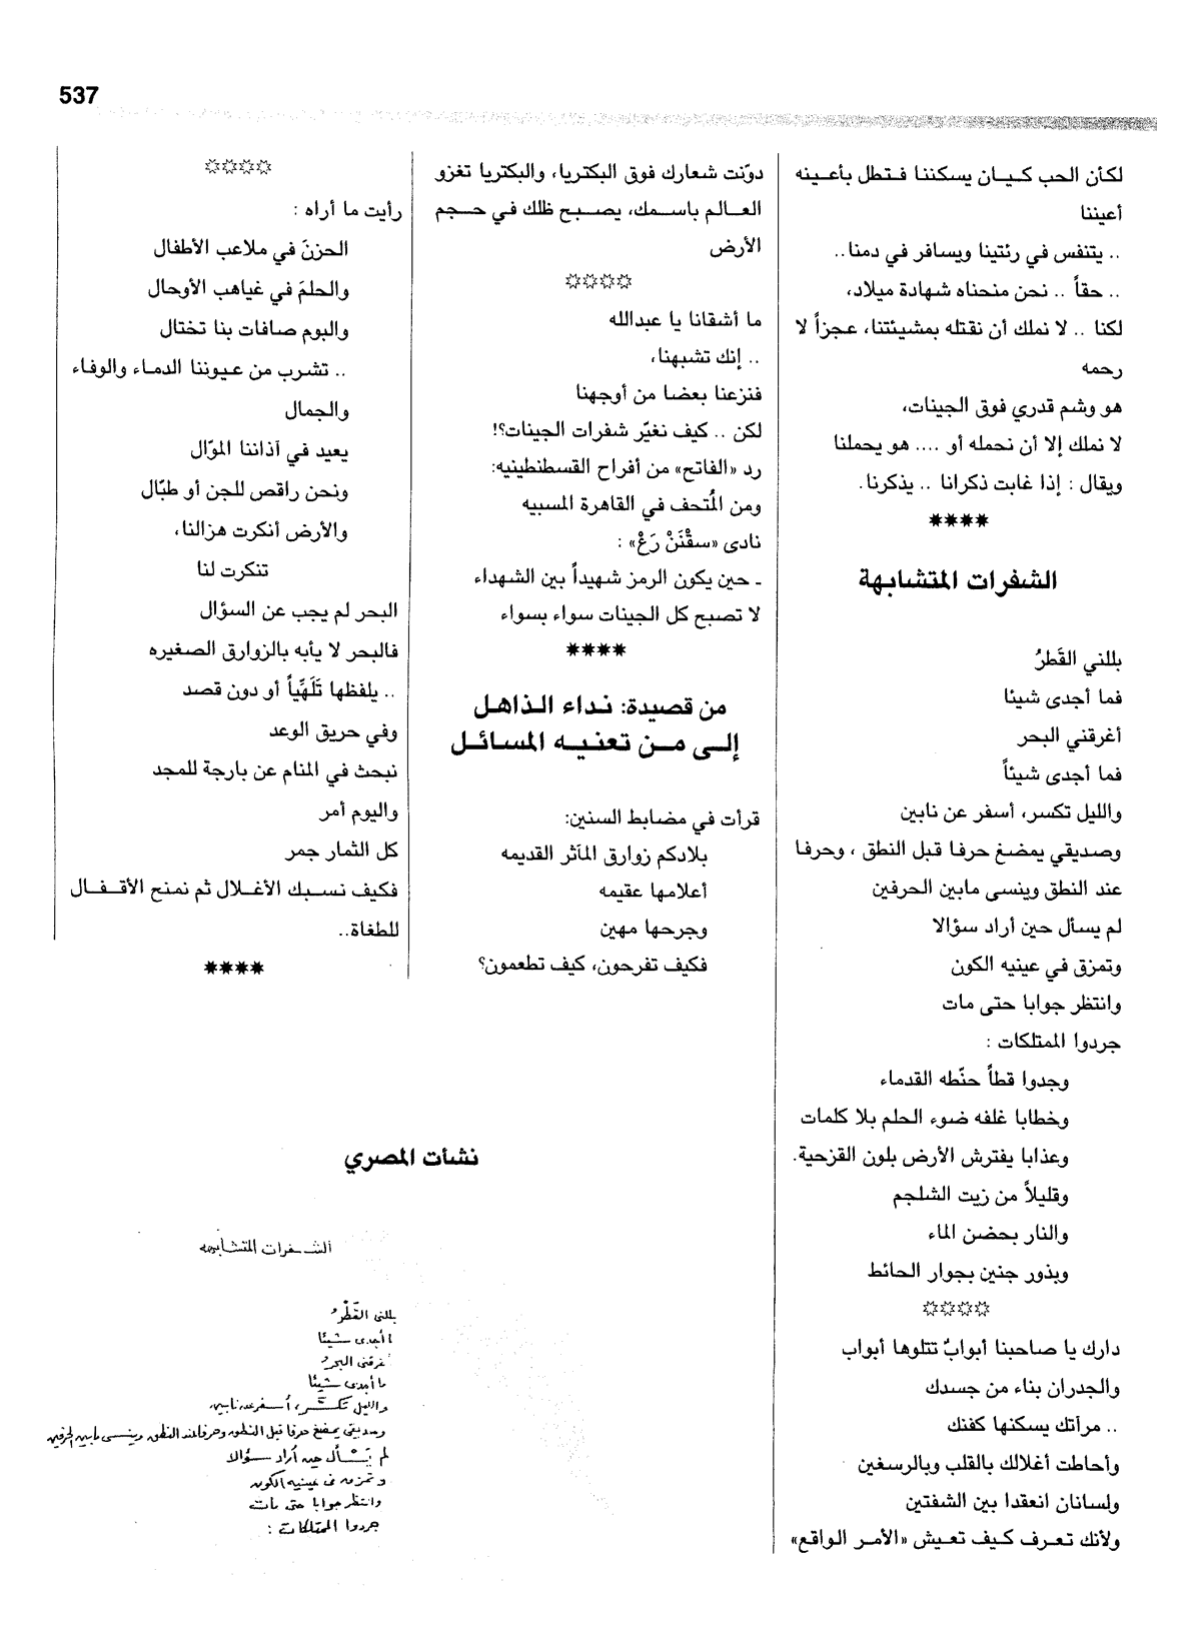 537
لكأن الحب كيان يسكننا فتطل بأعينه
أعيننا
.. يتنفس في رئتينا ويسافر في دمنا..
.. حقاً .. نحن منحناه شهادة ميلاد،
لكنا .. لا نملك أن نقتله بمشيئتنا، عجزاً لا
رحمه
هو وشم قدري فوق الجينات،
لا نملك إلا أن نحمله أو .... هو يحملنا
ويقال : إذا غابت ذكرانا .. يذكرنا.
****
الشفرات المتشابهة
بللني القَطرُ
فما أجدى شيئا
أغرقني البحر
فما أجدى شيئاً
والليل تكسر، أسفر عن نابين
وصديقي يمضغ حرفا قبل النطق ، وحرفا
عند النطق وينسى مابين الحرفين
لم يسأل حين أراد سؤالا
وتمزق في عينيه الكون
وانتظر جوابا حتى مات
جردوا الممتلكات :
وجدوا قطاً حنّطه القدماء
وخطابا غلفه ضوء الحلم بلا كلمات
وعذابا يفترش الأرض بلون القزحية.
وقليلاً من زيت الشلجم
والنار بحضن الماء
وبذور جنين بجوار الحائط
☼☼☼☼
دارك يا صاحبنا أبوابٌ تتلوها أبواب
والجدران بناء من جسدك
.. مرآتك يسكنها كفنك
وأحاطت أغلالك بالقلب وبالرسغين
ولسانان انعقدا بين الشفتين
ولأنك تعرف كيف تعيش «الأمر الواقع»
دوّنت شعارك فوق البكتريا، والبكتريا تغزو
العالم باسمك، يصبح ظلك في حجم
الأرض
☼☼☼☼
ما أشقانا يا عبدالله
.. إنك تشبهنا،
فنزعنا بعضا من أوجهنا
لكن .. كيف نغيّر شفرات الجينات؟!
رد «الفاتح» من أفراح القسطنطينيه:
ومن المُتحف في القاهرة المسبيه
نادى «سقْنَنْ رَعْ» :
ـ حين يكون الرمز شهيداً بين الشهداء
لا تصبح كل الجينات سواء بسواء
****
من قصيدة: نداء الذاهل
إلى من تعنيه المسائل
قرأت في مضابط السنين:
بلادكم زوارق المآثر القديمه
أعلامها عقيمه
وجرحها مهين
فكيف تفرحون، كيف تطعمون؟
☼☼☼☼
رأيت ما أراه :
الحزنَ في ملاعب الأطفال
والحلمَ في غياهب الأوحال
والبوم صافات بنا تختال
.. تشرب من عيوننا الدماء والوفاء
والجمال
يعيد في آذاننا الموّال
ونحن راقص للجن أو طبّال
والأرض أنكرت هزالنا،
تنكرت لنا
البحر لم يجب عن السؤال
فالبحر لا يأبه بالزوارق الصغيره
.. يلفظها تَلَهِّياً أو دون قصد
وفي حريق الوعد
نبحث في المنام عن بارجة للمجد
واليوم أمر
كل الثمار جمر
فكيف نسبك الأغلال ثم نمنح الأقفال
للطغاة..
****
نشأت المصري
الشفرات المتشابهه
بللنى القَطْرُ
ما أجدى شيئا
غرقنى البحرُ
ما أجدى شيئا
والليل تكسَّر، أسفر عن نابين
وصديقى يمضغ حرفا قبل النطق وحرفا عند النطق وينسى مابين الحرفين
لم يَسْأل حين أراد سؤالا
وتمزق فى عينيه الكون
وانتظر جوابا حتى مات
جردوا الممتلكات :